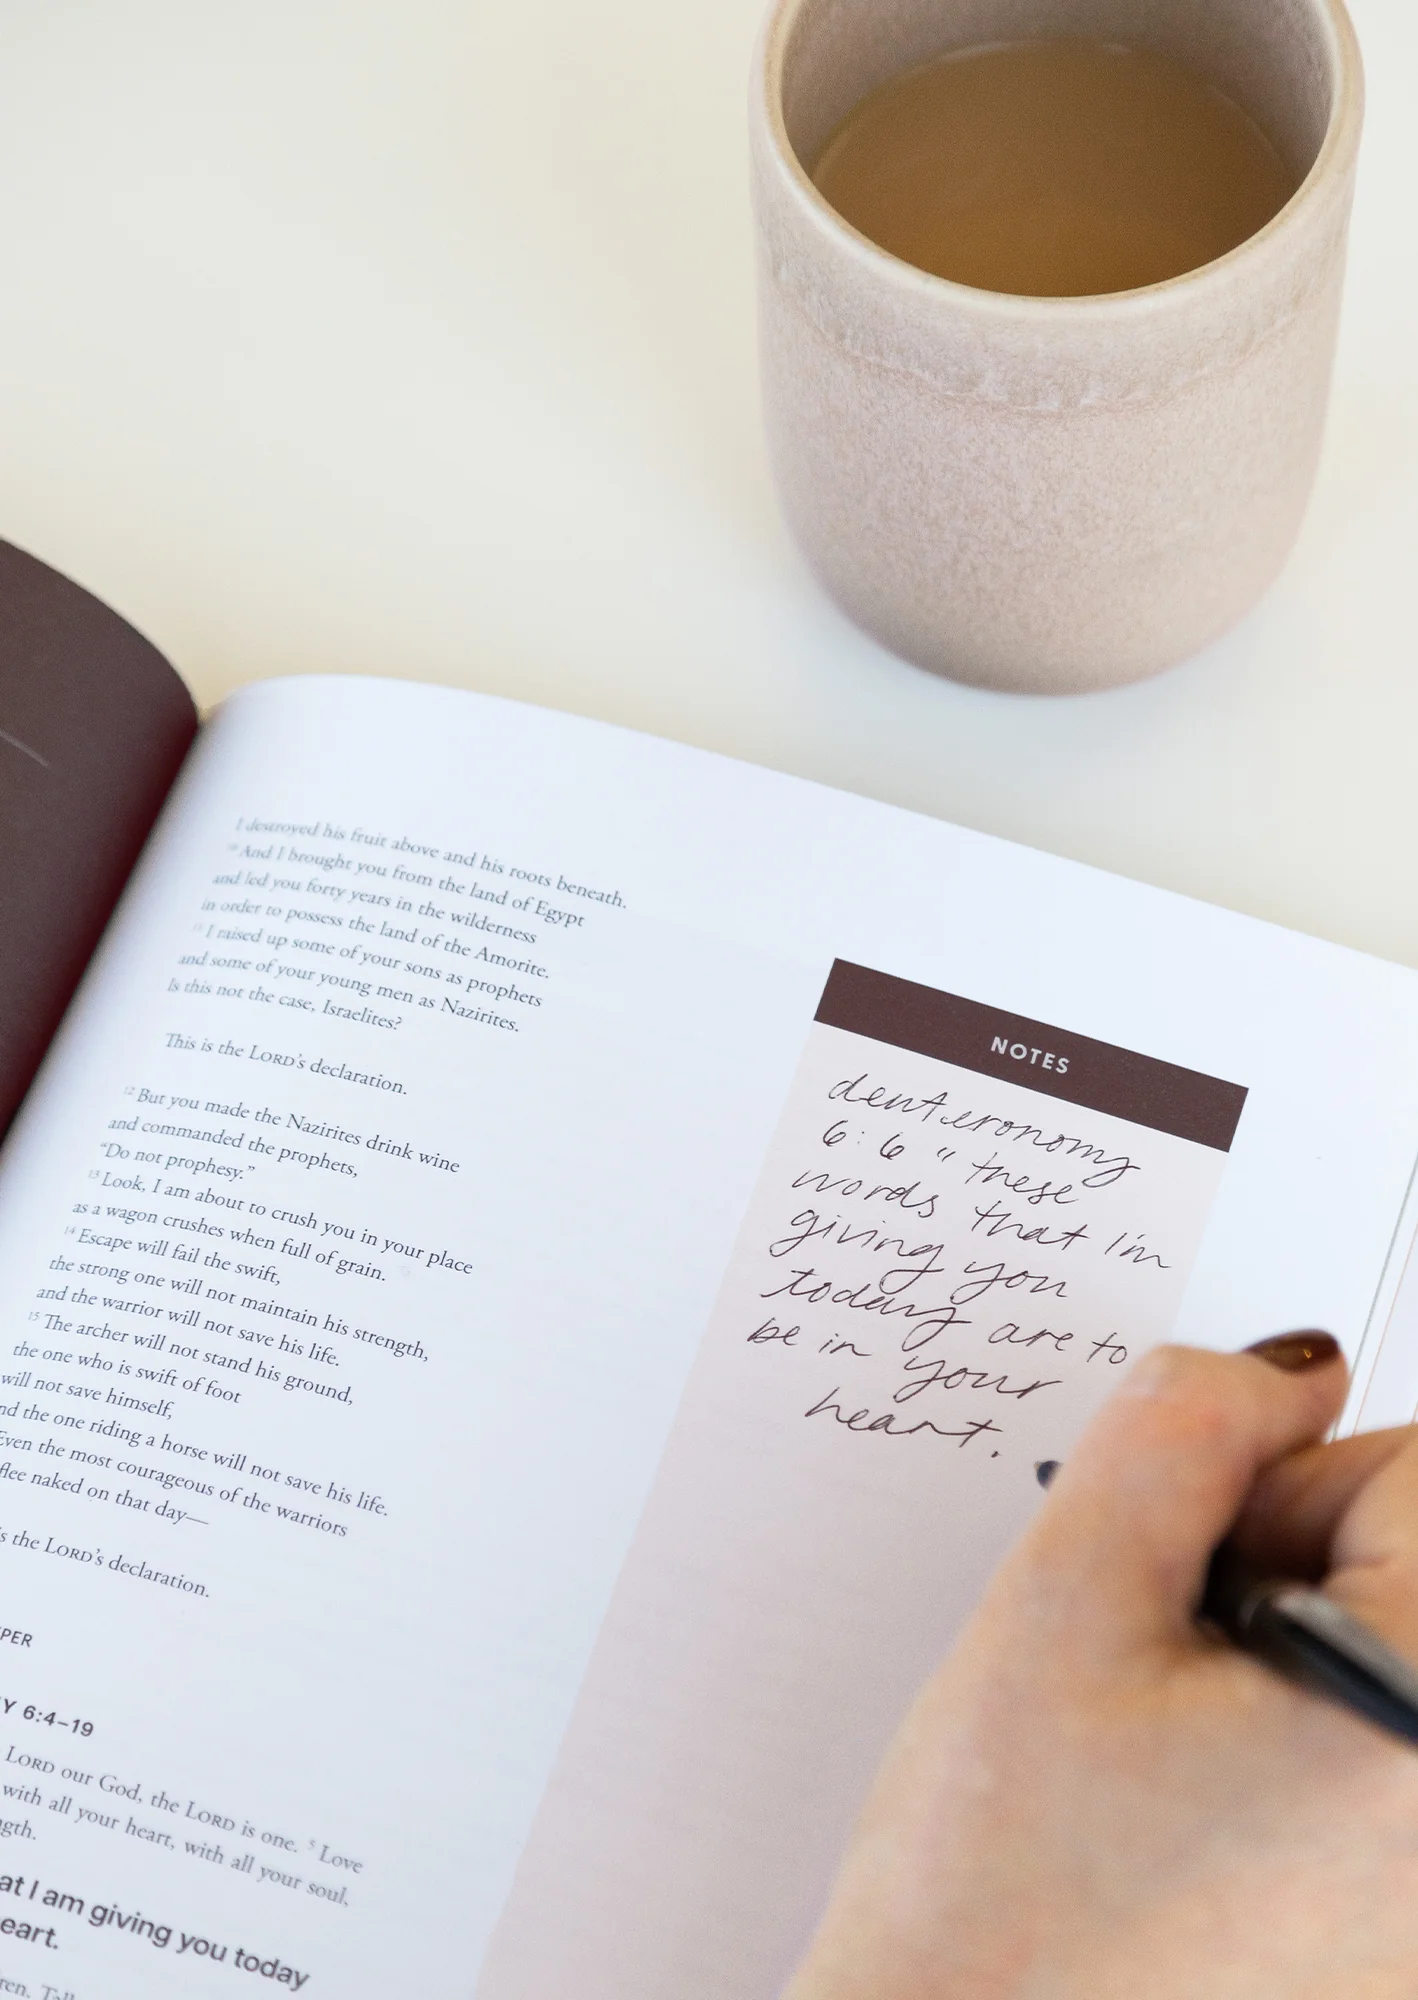 I destroyed his fruit above and his roots beneath.
10 And I brought you from the land of Egypt
and led you forty years in the wilderness
in order to possess the land of the Amorite.
11 I raised up some of your sons as prophets
and some of your young men as Nazirites.
Is this not the case, Israelites?
This is the LORD's declaration.
12 But you made the Nazirites drink wine
and commanded the prophets,
“Do not prophesy.”
13 Look, I am about to crush you in your place
as a wagon crushes when full of grain.
14 Escape will fail the swift,
the strong one will not maintain his strength,
and the warrior will not save his life.
15 The archer will not stand his ground,
the one who is swift of foot
will not save himself,
nd the one riding a horse will not save his life.
Even the most courageous of the warriors
flee naked on that day—
s the LORD's declaration.
PER
Y 6:4–19
LORD our God, the LORD is one. 5 Love
with all your heart, with all your soul,
ngth.
at I am giving you today
eart.
ren.
NOTES
deuteronomy
6:6 "these
words that i'm
giving you
today are to
be in your
heart.